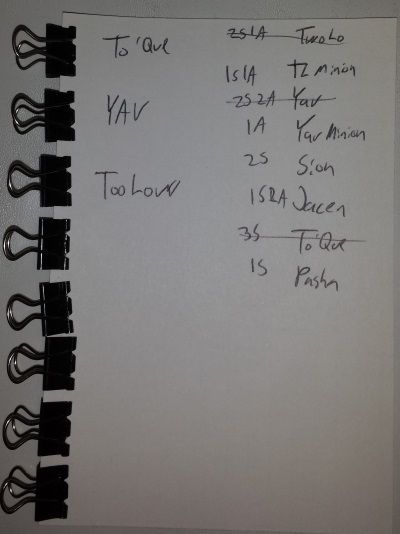 To'Que
YAV
TooLow
2S1A TwoLo
1S1A TZ Minion
2S2A Yav
1A Yav Minion
2S Sion
1S2A Jacen
3S To'Que
1S Pasha